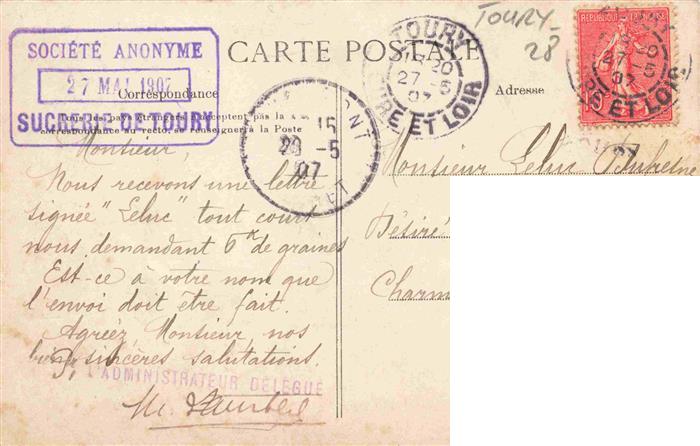 SOCIÉTÉ ANONYME
27 MAI 1907
SUCRERIE DE TOURY
CARTE POSTALE
TOURY-
28
TOURY
27 -5
07
EURE ET LOIR
REPUBLIQUE FRANÇAISE
27 -5
07
EURE ET LOIR
Correspondance
Adresse
Tous les pays étrangers n'acceptent pas la
correspondance au recto, se renseigner à la Poste
-5
07
Monsieur,
Nous recevons une lettre
signée "Leluc" tout court
nous demandant 6 k de graines
Est-ce à votre nom que
l'envoi doit être fait.
Agréez Monsieur, nos
bien sincères salutations.
L'ADMINISTRATEUR DÉLÉGUÉ
Monsieur Leluc
Désiré
Charm